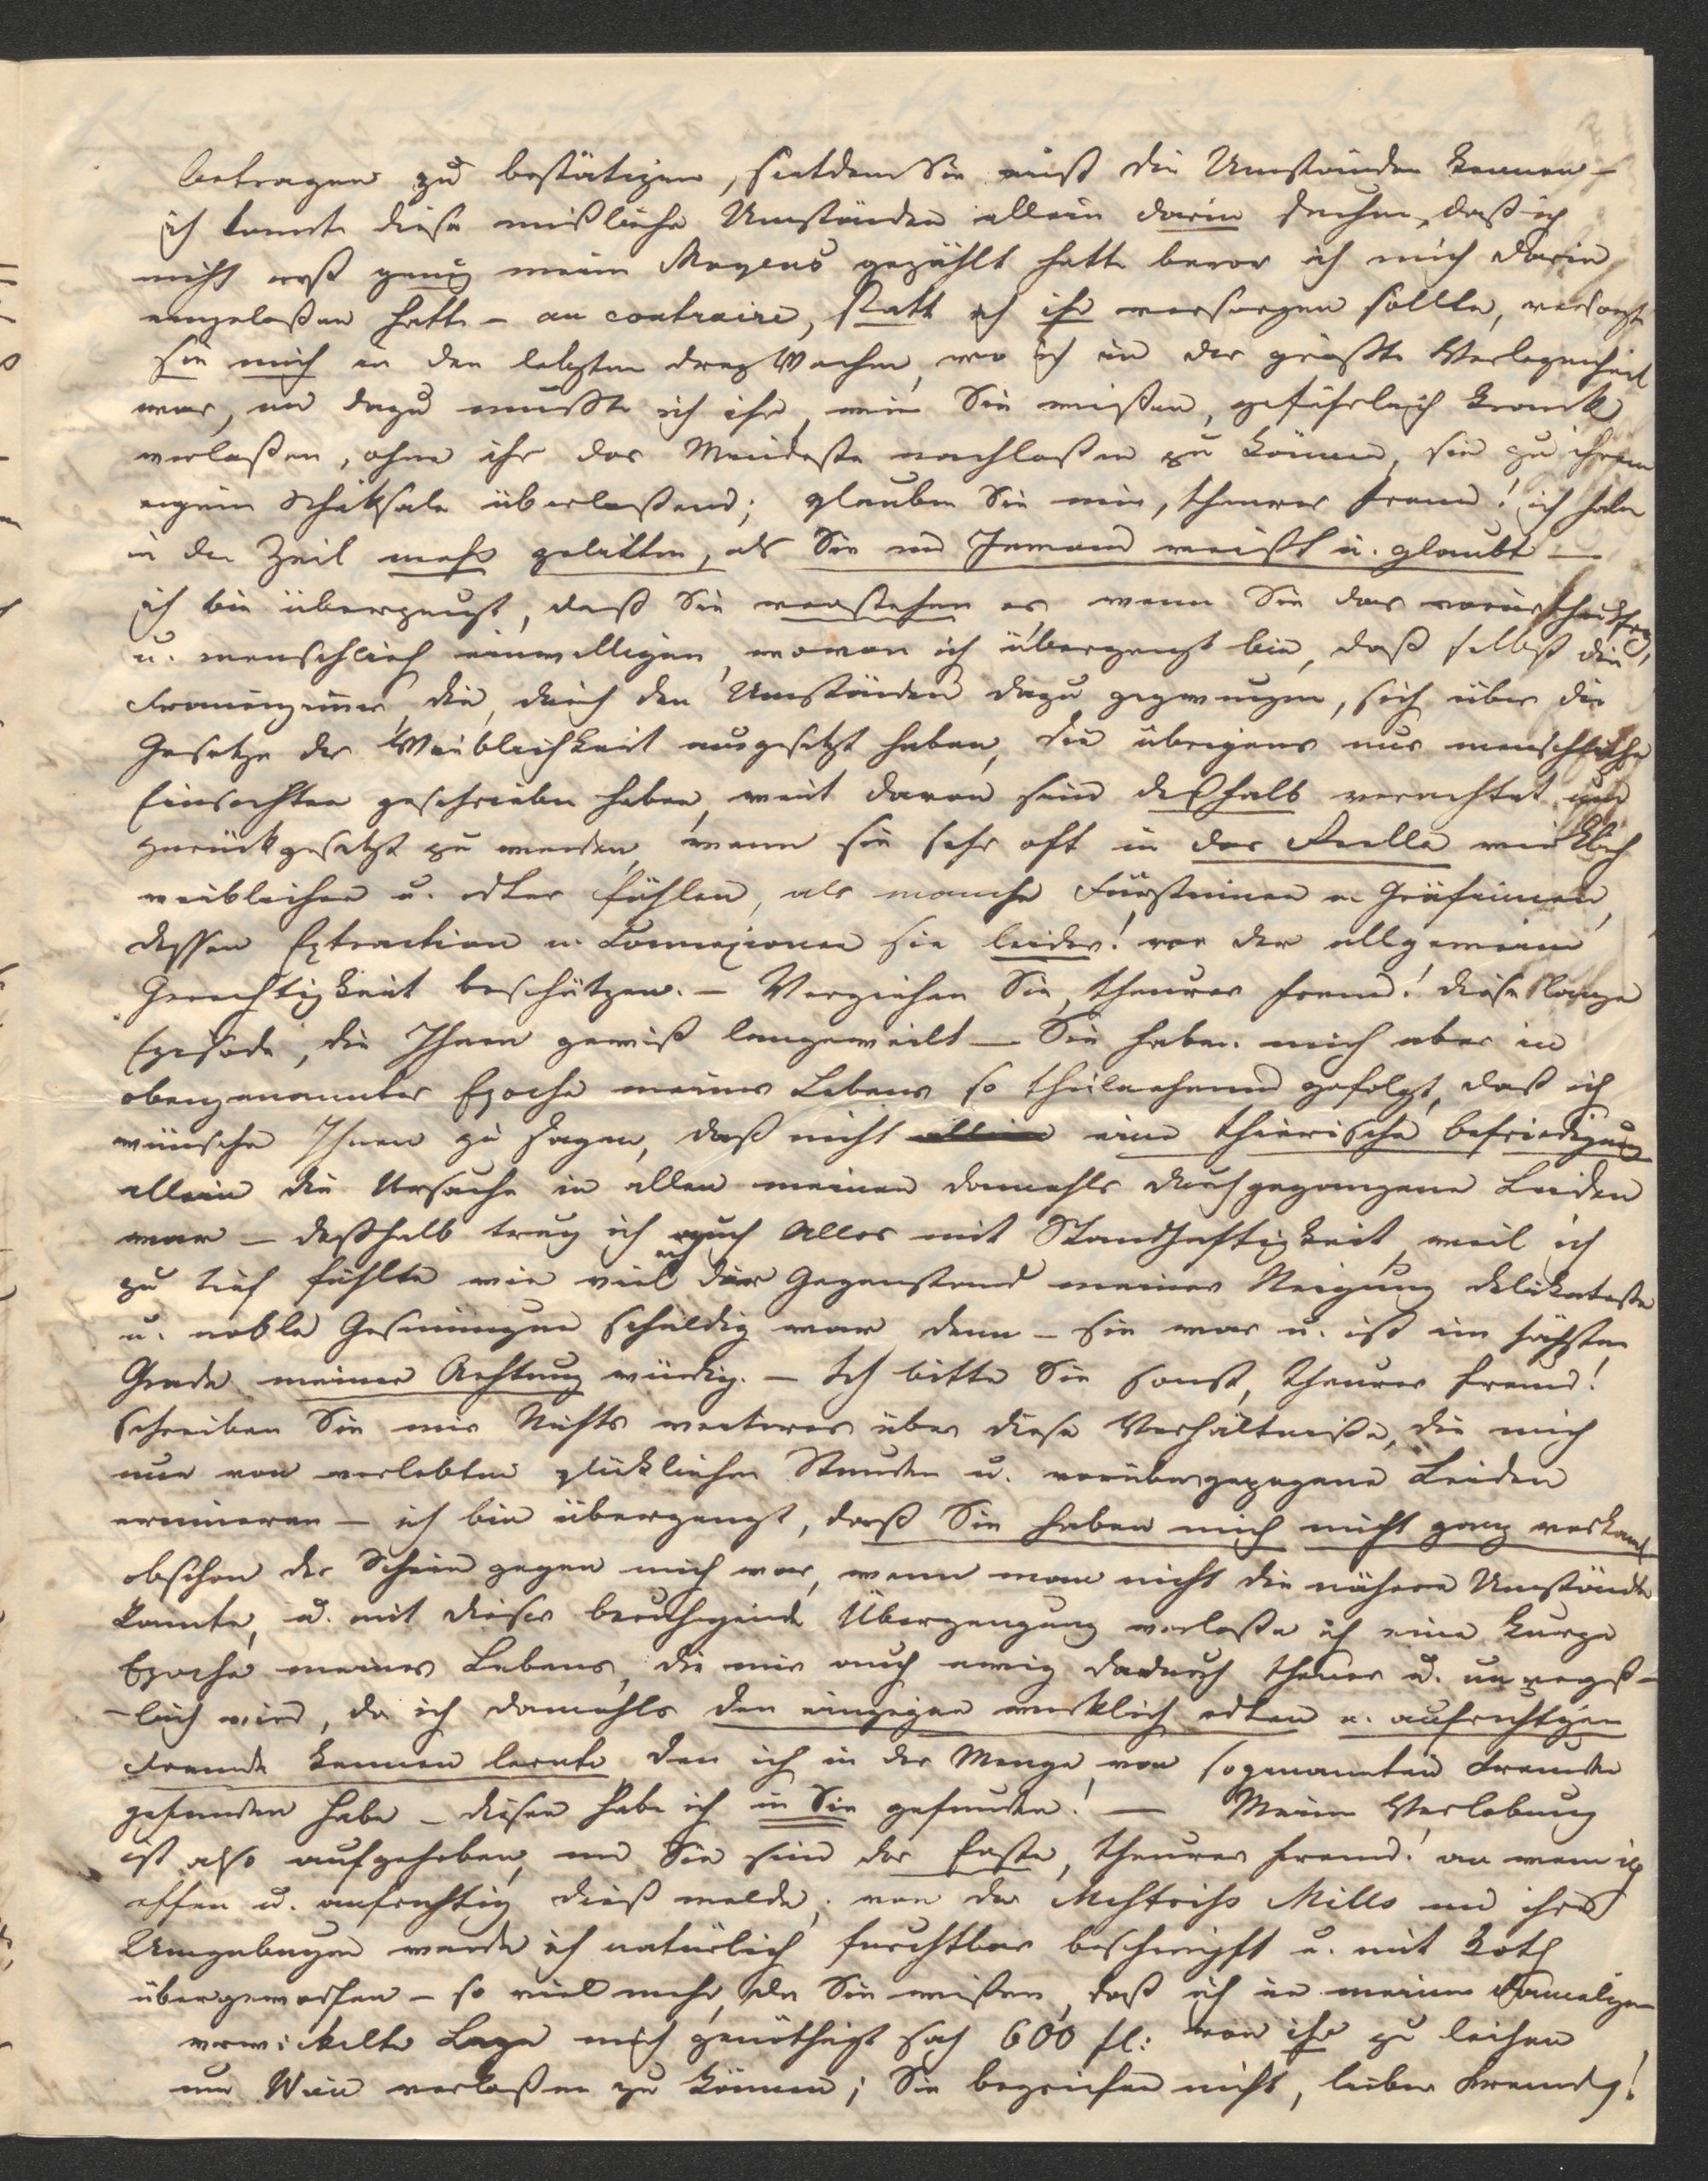 betragen zu bestätigen, seitdem Sie nicht die Umständen kennen –
ich konnte diese mißliche Umständen allein darin suchen, daß ich
nicht erst genug meine Moyens gezählt hatte bevor ich mich darin
eingelaßen hatte – au contraire, statt ich ihr versorgen sollte, versorgte
sie mich in den letzten drey Wochen, wo ich in der größte Verlegenheit
war, un dazu mußte ich ihr, wie Sie wißen, gefährlich krank
verlaßen, ohne ihr das Mindeste nachlaßen zu können, sie zu ihrem
eigene Schiksale überlaßend; glauben Sie mir, theurer Freund! ich habe
in der Zeit mehr gelitten, als Sie un Jemand weißt u. glaubt –
ich bin überzeugt, daß Sie verstehen es wenn Sie das
u. menschlich einwilligen, wovon ich überzeugt bin, daß selbst die
Frauenzimmer, die, durch den Umständen dazu gezwungen, sich über die
Gesetze der Weiblichkeit ausgesetzt haben, die übrigens nur menschliche
Einsichten geschrieben haben, weit davon sein deßhalb verachtet und
zurückgesetzt zu werden, wenn sie sehr oft in der Stille wirklich
weiblicher u. edler fühlen, als manche Fürstinnen u. Gräfinnen,
dessen Extraction u. Connexionen sie leider! vor der allgemeine
Gerechtigkeit beschützen. – Verzeihen Sie, theurer Freund! diese lange
Episode, die Ihnen gewiß langeweilt – Sie haben mich aber in
obengenannter Epoche meines Lebens so theilnehmend gefolgt, daß ich
wünsche Ihnen zu sagen, daß nicht allein eine thierische Befriedigung
allein die Ursache in allen meinen damahls durchgegangene Leiden
war – deßhalb trug ich auch Alles mit Standhaftigkeit, weil ich
zu tief fühlte wie viel ich der Gegenstand meiner Neigung delikateste
u. noble Gesinnungen schuldig war denn – sie war u. ist im höchsten
Grade meiner Achtung würdig. – Ich bitte Sie sonst, theurer Freund!
schreiben Sie mir Nichts weiteres über diese Verhältniße, die mich
nur von verlebten glücklichen Stunden u. vorübergezogene Leiden
erinneren – ich bin überzeugt, daß Sie haben mich nicht ganz verkant
obschon der Schein gegen mich war, wenn man nicht die nähere Umstände
kannte, u. mit dieser beruhigende Überzeugung verlaße ich eine kurze
Epoche meines Lebens, die mir auch ewig dadurch theuer u. unvergeß-
-lich wird, da ich damahls den einzigen wirklich edlen u. aufrichtigen
Freunde kennen lernte, den ich in der Menge von sogenannten Freunde
gefunden habe – diesen habe ich in Sie gefunden! – Meine Verlobung
ist also aufgehoben, un Sie sind der Erste, theurer Freund! an wem ich
offen u. aufrichtig dieß melde; von der Mills un ihre
Umgebungen werde ich natürlich furchtbar beschimpft u. mit Koth
übergeworfen – so viel mehr, da Sie wißen, daß ich in meiner damaligen
verwikelte Lage mich genöthigt sah 600 fl: von ihr zu leihen
um Wien verlaßen zu können; Sie begreifen nicht, lieber Freund!